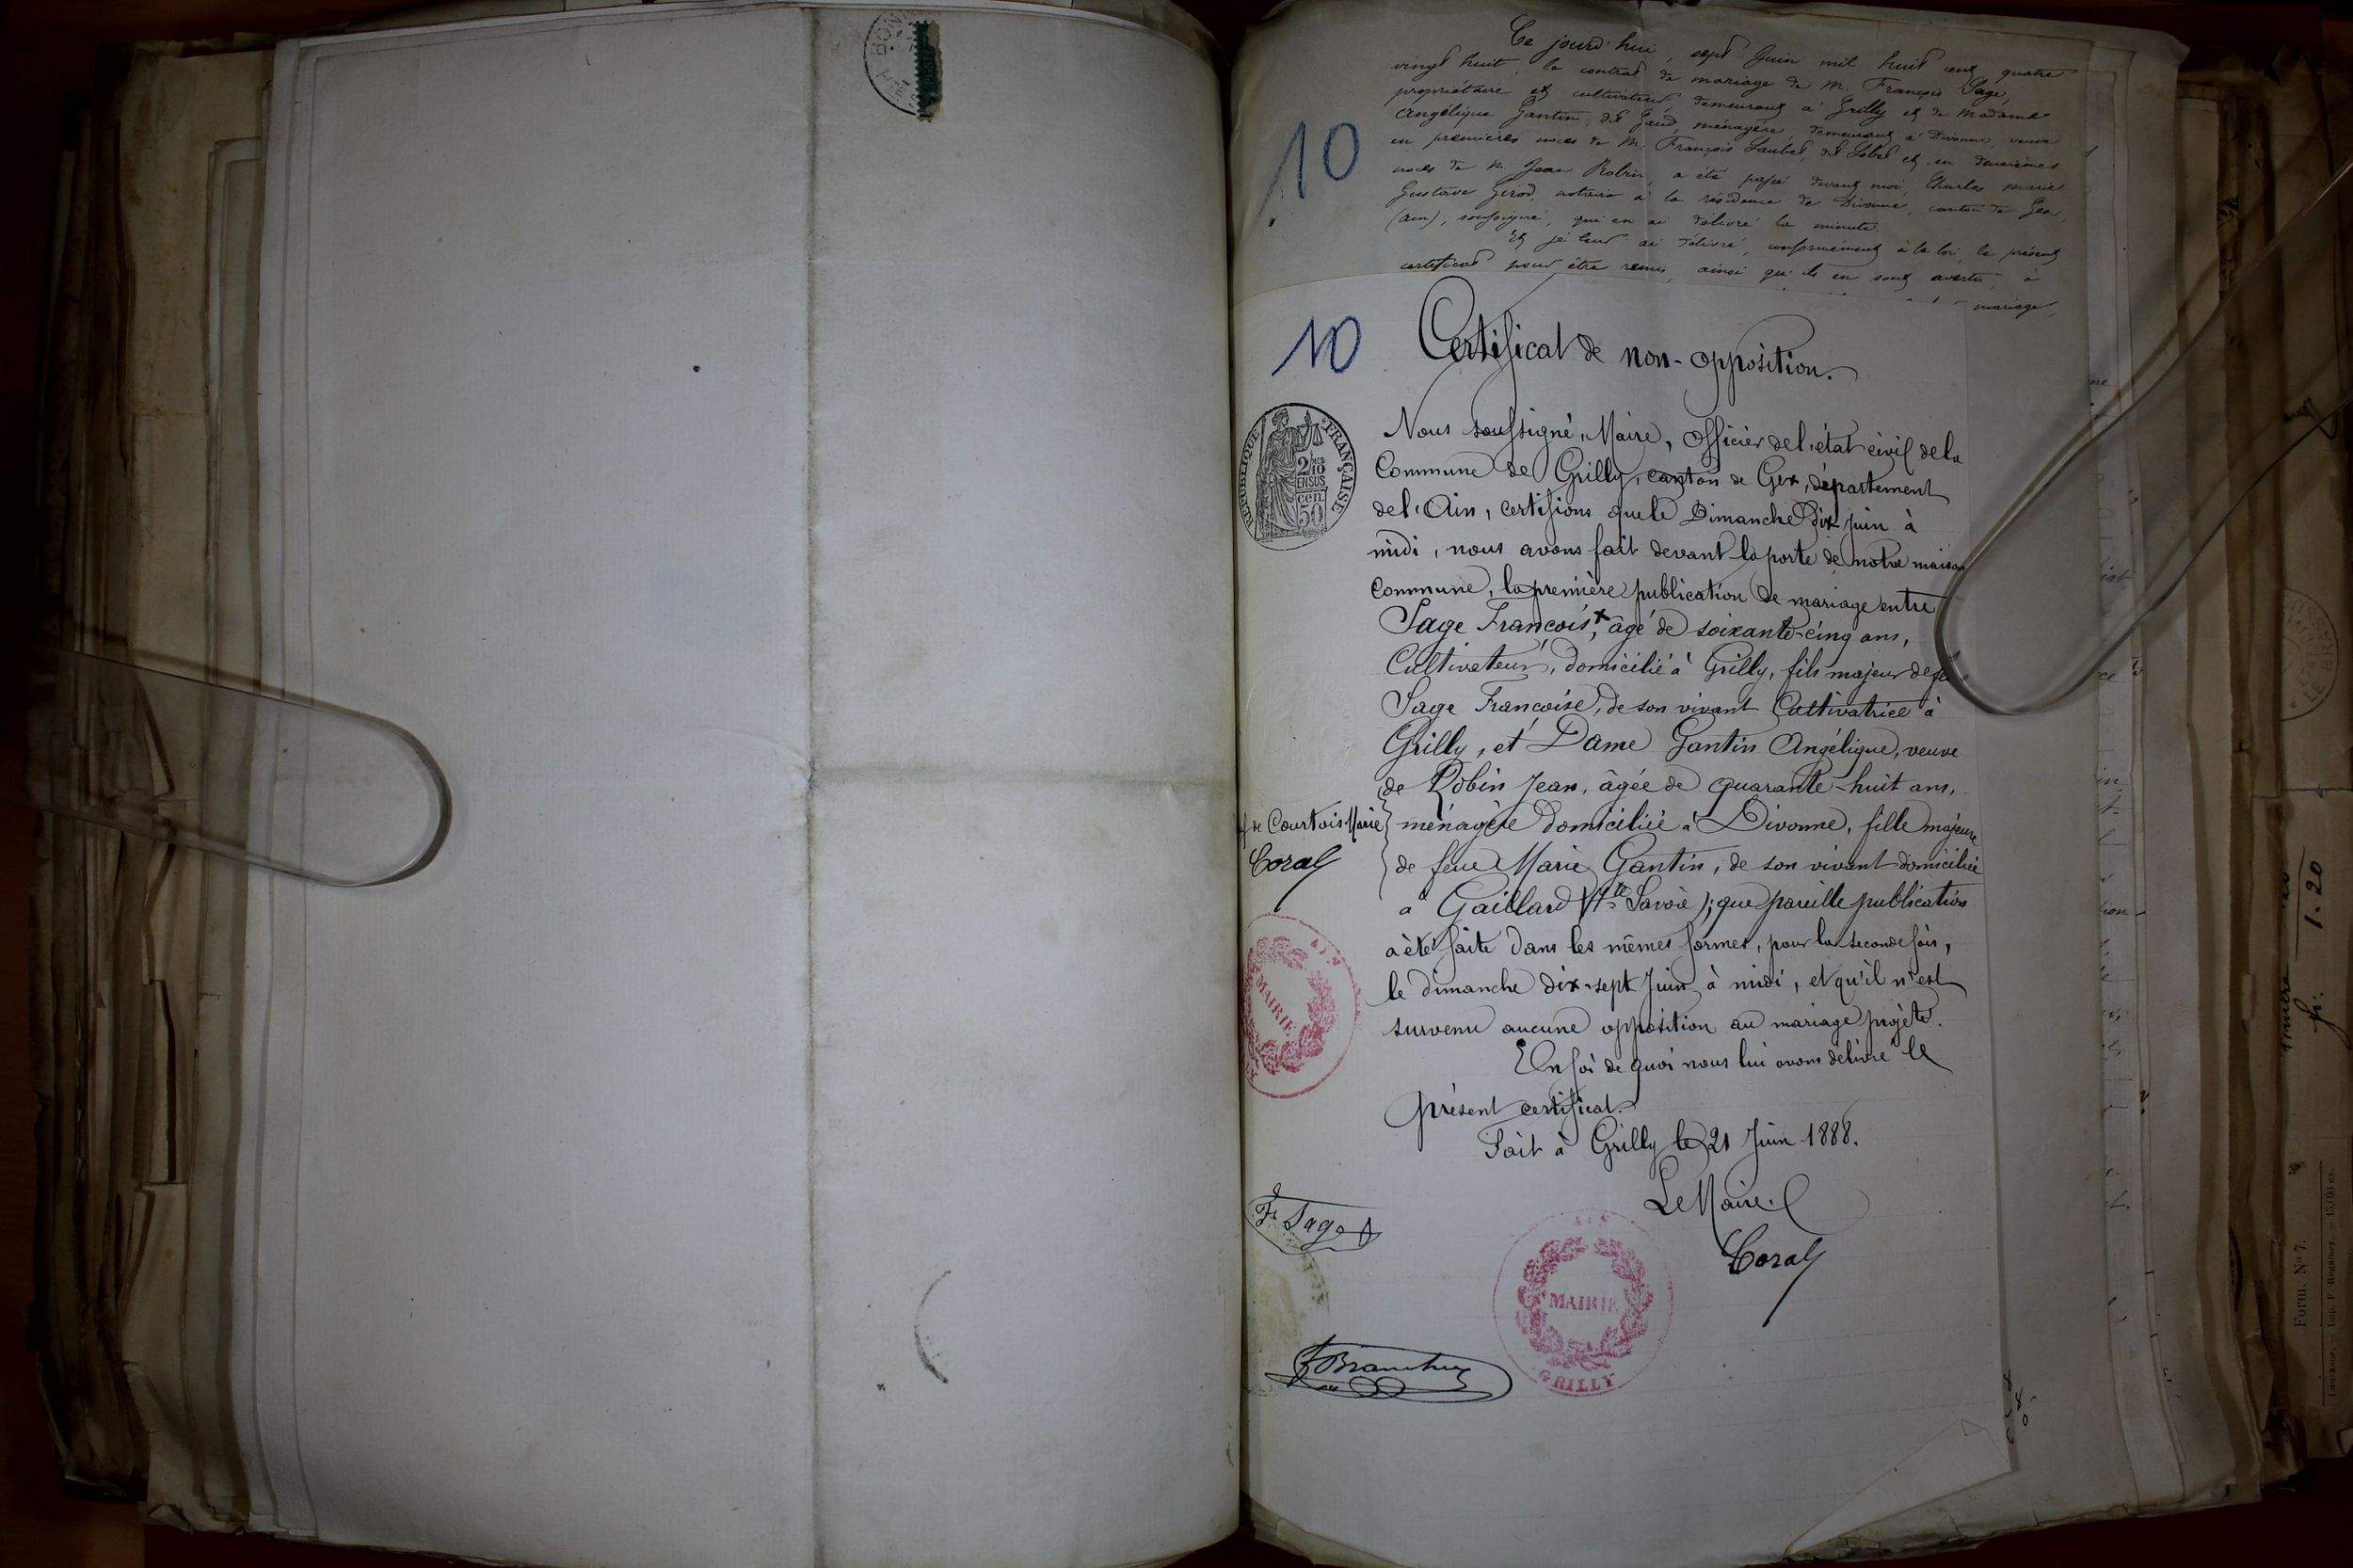 Ce jourd'hui, sept Juin mil huit cent quatre
vingt huit, le contrat de mariage de M. François Sage,
propriétaire et cultivateur, demeurant à Grilly et de Madame
Angélique Gantin, dit Gaud, ménagère, demeurant à Divonne, veuve
en premières noces de M. François Laubel, dit Lobel et en deuxièmes
noces de M. Jean Robin, a été passé devant moi, Charles
Gustave Girod, notaire à la résidence de Divonne, canton de Gex,
(Ain), soussigné, qui en ai délivré la minute.
Et je leur ai délivré, conformément à la loi, le présent
certificat pour être remis, ainsi qu'ils en sont avertis, à
mariage,
10
10
Certificat de non-opposition.
REPUBLIQUE FRANÇAISE
2/10 EN SUS
cen. 50
Nous soussigné, Maire, officier de l'état civil de la
Commune de Grilly, canton de Gex, département
de l'Ain, certifions que le Dimanche dix juin à
midi, nous avons fait devant la porte de notre maison
Commune, la première publication de mariage entre
Sage François,x âgé de soixante-cinq ans,
Cultivateur, domicilié à Grilly, fils majeur de
Sage Françoise, de son vivant Cultivatrice à
Grilly, et Dame Gantin Angélique, veuve
de Robin Jean, âgée de quarante-huit ans,
ménagère domiciliée à Divonne, fille majeure
de feue Marie Gantin, de son vivant domiciliée
à Gaillard (Hte Savoie); que pareille publication
a été faite dans les mêmes formes, pour la seconde fois,
le dimanche dix-sept Juin à midi, et qu'il n'est
survenu aucune opposition au mariage projeté.
En foi de quoi nous lui avons délivré le
présent certificat.
Fait à Grilly le 21 Juin 1888.
Le Maire
Coral
de Courtois Marie
Coral
MAIRIE
AIN
Fs Sage
MAIRIE
GRILLY
1.20
Form. No 7.